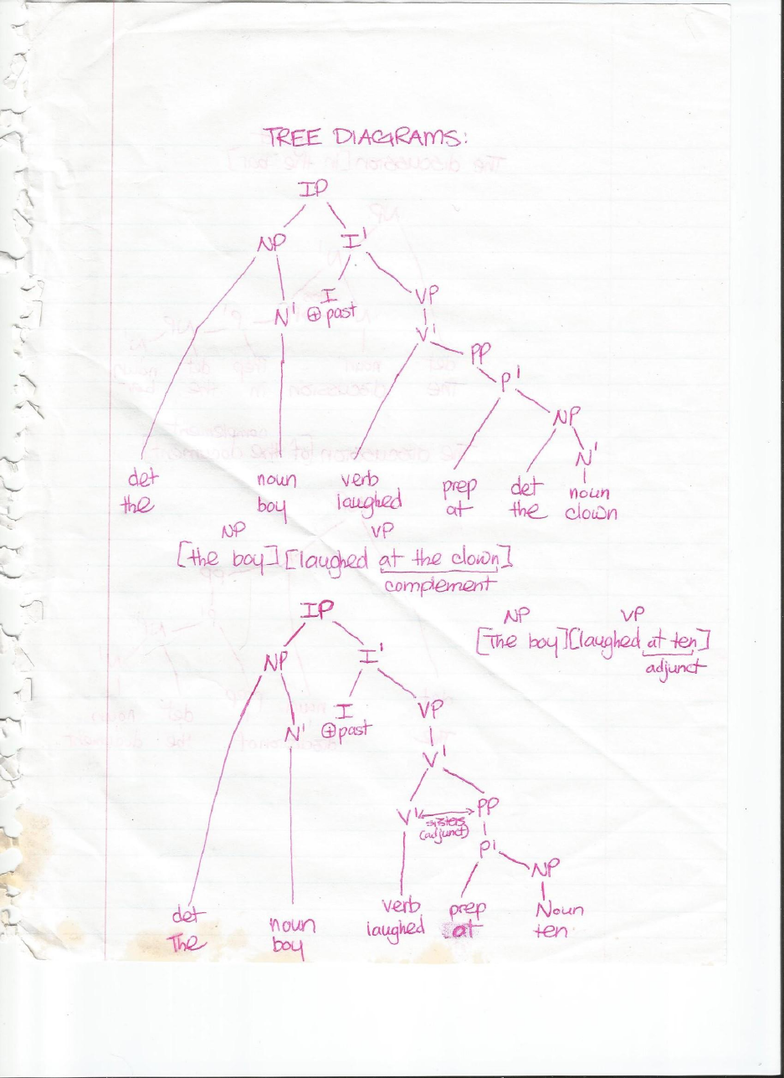 TREE DIAGRAMS:
IP
NP I'
I VP
N' ⊕past
V'
PP
P'
NP
N'
det noun verb prep det noun
the boy laughed at the clown
NP VP
[the boy][laughed at the clown]
complement
IP
NP VP
[The boy][laughed at ten]
adjunct
NP I'
I VP
N' ⊕past
V'
V' PP
sisters
(adjunct)
P'
NP
det noun verb prep Noun
The boy laughed at ten